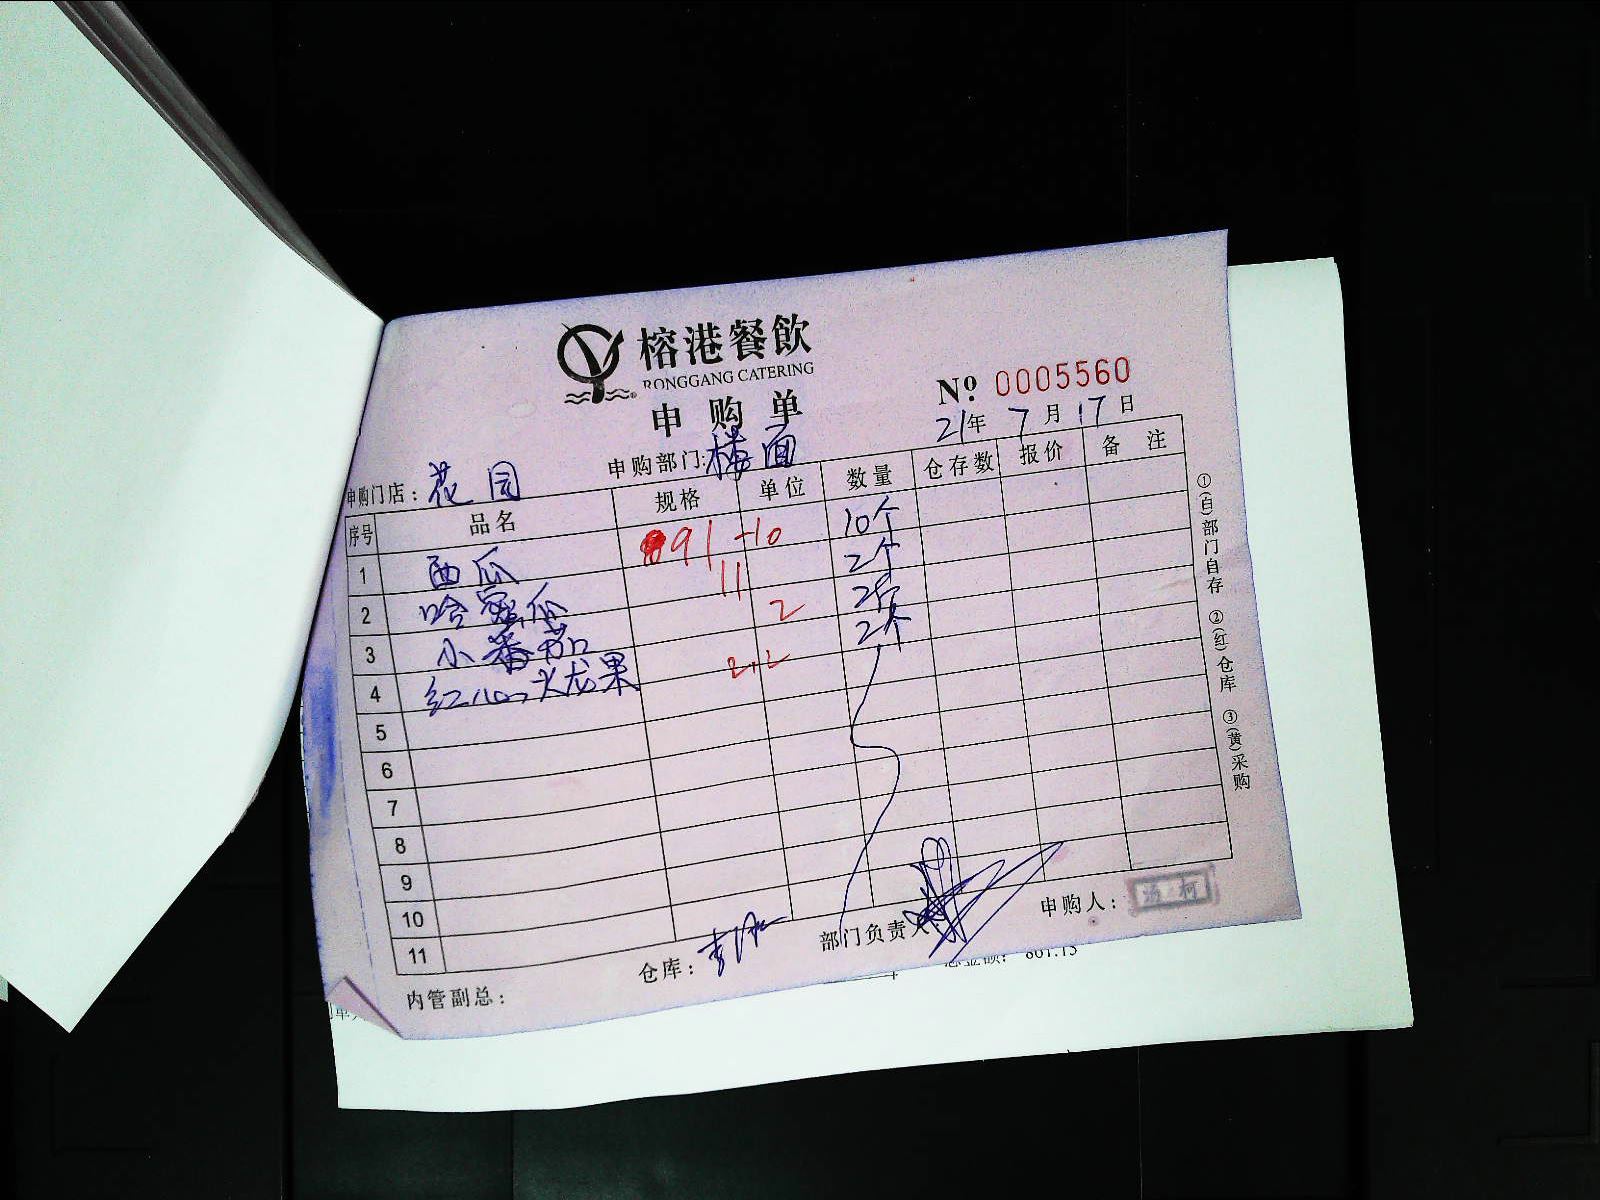 榕港餐飲
RONGGANG CATERING
申购单
№ 0005560
21年 7月 17日
申购门店：花园 申购部门:楼面
序号 品名 规格 单位 数量 仓存数 报价 备注
1 西瓜 91 -10 10个
2 哈密瓜 11 2个
3 小番茄 2 2斤
4 红心火龙果 2.2 2个
5
6
7
8
9
10
11
内管副总： 仓库： 部门负责人 申购人：
①(白)部门自存 ②(红)仓库 ③(黄)采购
861.15